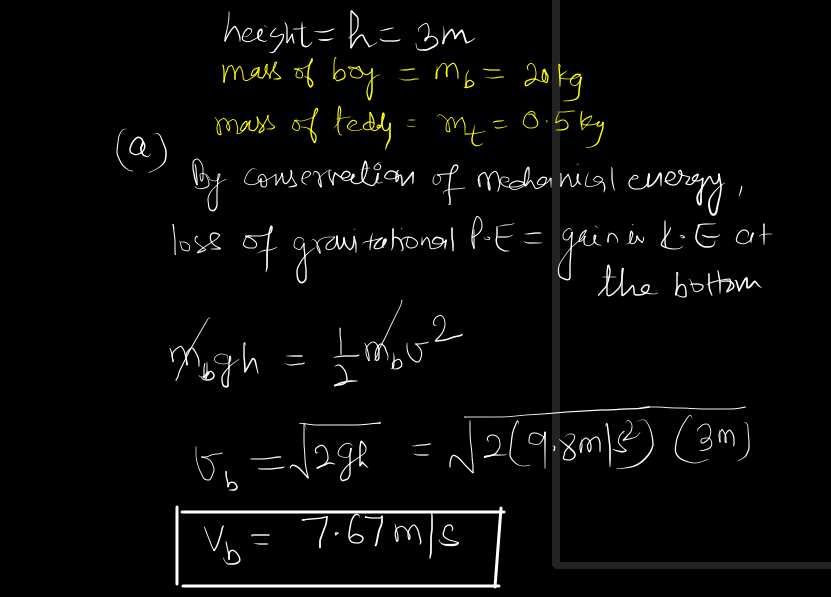 height = h = 3m
mass of boy = m_b = 20 kg
mass of teddy = m_t = 0.5 kg
(a)
By conservation of mechanical energy,
loss of gravitational P.E = gain in K.E at
the bottom
m_b gh = 1/2 m_b v²
v_b = √2gh = √2(9.8m/s²) (3m)
V_b = 7.67 m/s